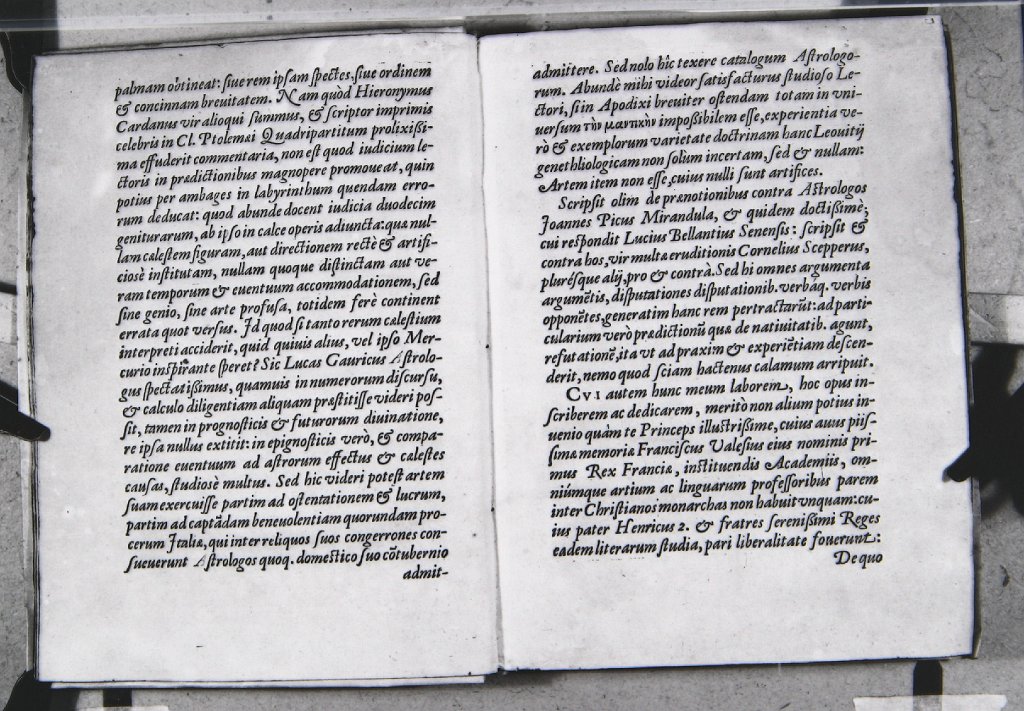 palmam obtineat: siue rem ipsam spectes, siue ordinem
& concinnam breuitatem. Nam quòd Hieronymus
Cardanus vir alioqui summus, & scriptor imprimis
celebris in Cl. Ptolemæi Quadripartitum prolixißi-
ma effuderit commentaria, non est quod iudicium le-
ctoris in prædictionibus magnopere promoueat, quin
potius per ambages in labyrinthum quendam erro-
rum deducat: quod abunde docent iudicia duodecim
geniturarum, ab ipso in calce operis adiuncta: quæ nul-
lam cælestem figuram, aut directionem rectè & artifi-
ciosè institutam, nullam quoque distinctam aut ve-
ram temporum & euentuum accommodationem, sed
sine genio, sine arte profusa, totidem ferè continent
errata quot versus. Id quod si tanto rerum cælestium
interpreti acciderit, quid quiuis alius, vel ipso Mer-
curio inspirante speret? Sic Lucas Gauricus Astrolo-
gus spectatißimus, quamuis in numerorum discursu,
& calculo diligentiam aliquam præstitisse videri pos-
sit, tamen in prognosticis & futurorum diuinatione,
re ipsa nullus extitit: in epignosticis verò, & compa-
ratione euentuum ad astrorum effectus & cælestes
causas, studiosè multus. Sed hic videri potest artem
suam exercuisse partim ad ostentationem & lucrum,
partim ad captãdam beneuolentiam quorundam pro-
cerum Italiæ, qui inter reliquos suos congerrones con-
sueuerunt Astrologos quoq. domestico suo cõtubernio
admit-
admittere. Sed nolo hîc texere catalogum Astrologo-
rum. Abundè mihi videor satisfacturus studioso Le-
ctori, si in Apodixi breuiter ostendam totam in vni-
uersum τὴν μαντικὴν impoßibilem esse, experientia ve-
rò & exemplorum varietate doctrinam hanc Leouitij
genethliologicam non solum incertam, sed & nullam:
Artem item non esse, cuius nulli sunt artifices.
Scripsit olim de prænotionibus contra Astrologos
Joannes Picus Mirandula, & quidem doctißimè;
cui respondit Lucius Bellantius Senensis: scripsit &
contra hos, vir multæ eruditionis Cornelius Scepperus,
plurésque alij, pro & contrà. Sed hi omnes argumenta
argumẽtis, disputationes disputationib. verbáq. verbis
opponẽtes, generatim hanc rem pertractarũt: ad parti-
cularium verò prædictionũ quæ de natiuitatib. agunt,
refutationẽ, ita vt ad praxim & experiẽtiam descen-
derit, nemo quod sciam hactenus calamum arripuit.
CVI autem hunc meum laborem, hoc opus in-
scriberem ac dedicarem, meritò non alium potius in-
uenio quàm te Princeps illustrißime, cuius auus piis-
simæ memoriæ Franciscus Valesius eius nominis pri-
mus Rex Franciæ, instituendis Academiis, om-
niúmque artium ac linguarum professoribus parem
inter Christianos monarchas non habuit vnquam: cu-
ius pater Henricus 2. & fratres serenißimi Reges
eadem literarum studia, pari liberalitate fouerunt:
De quo